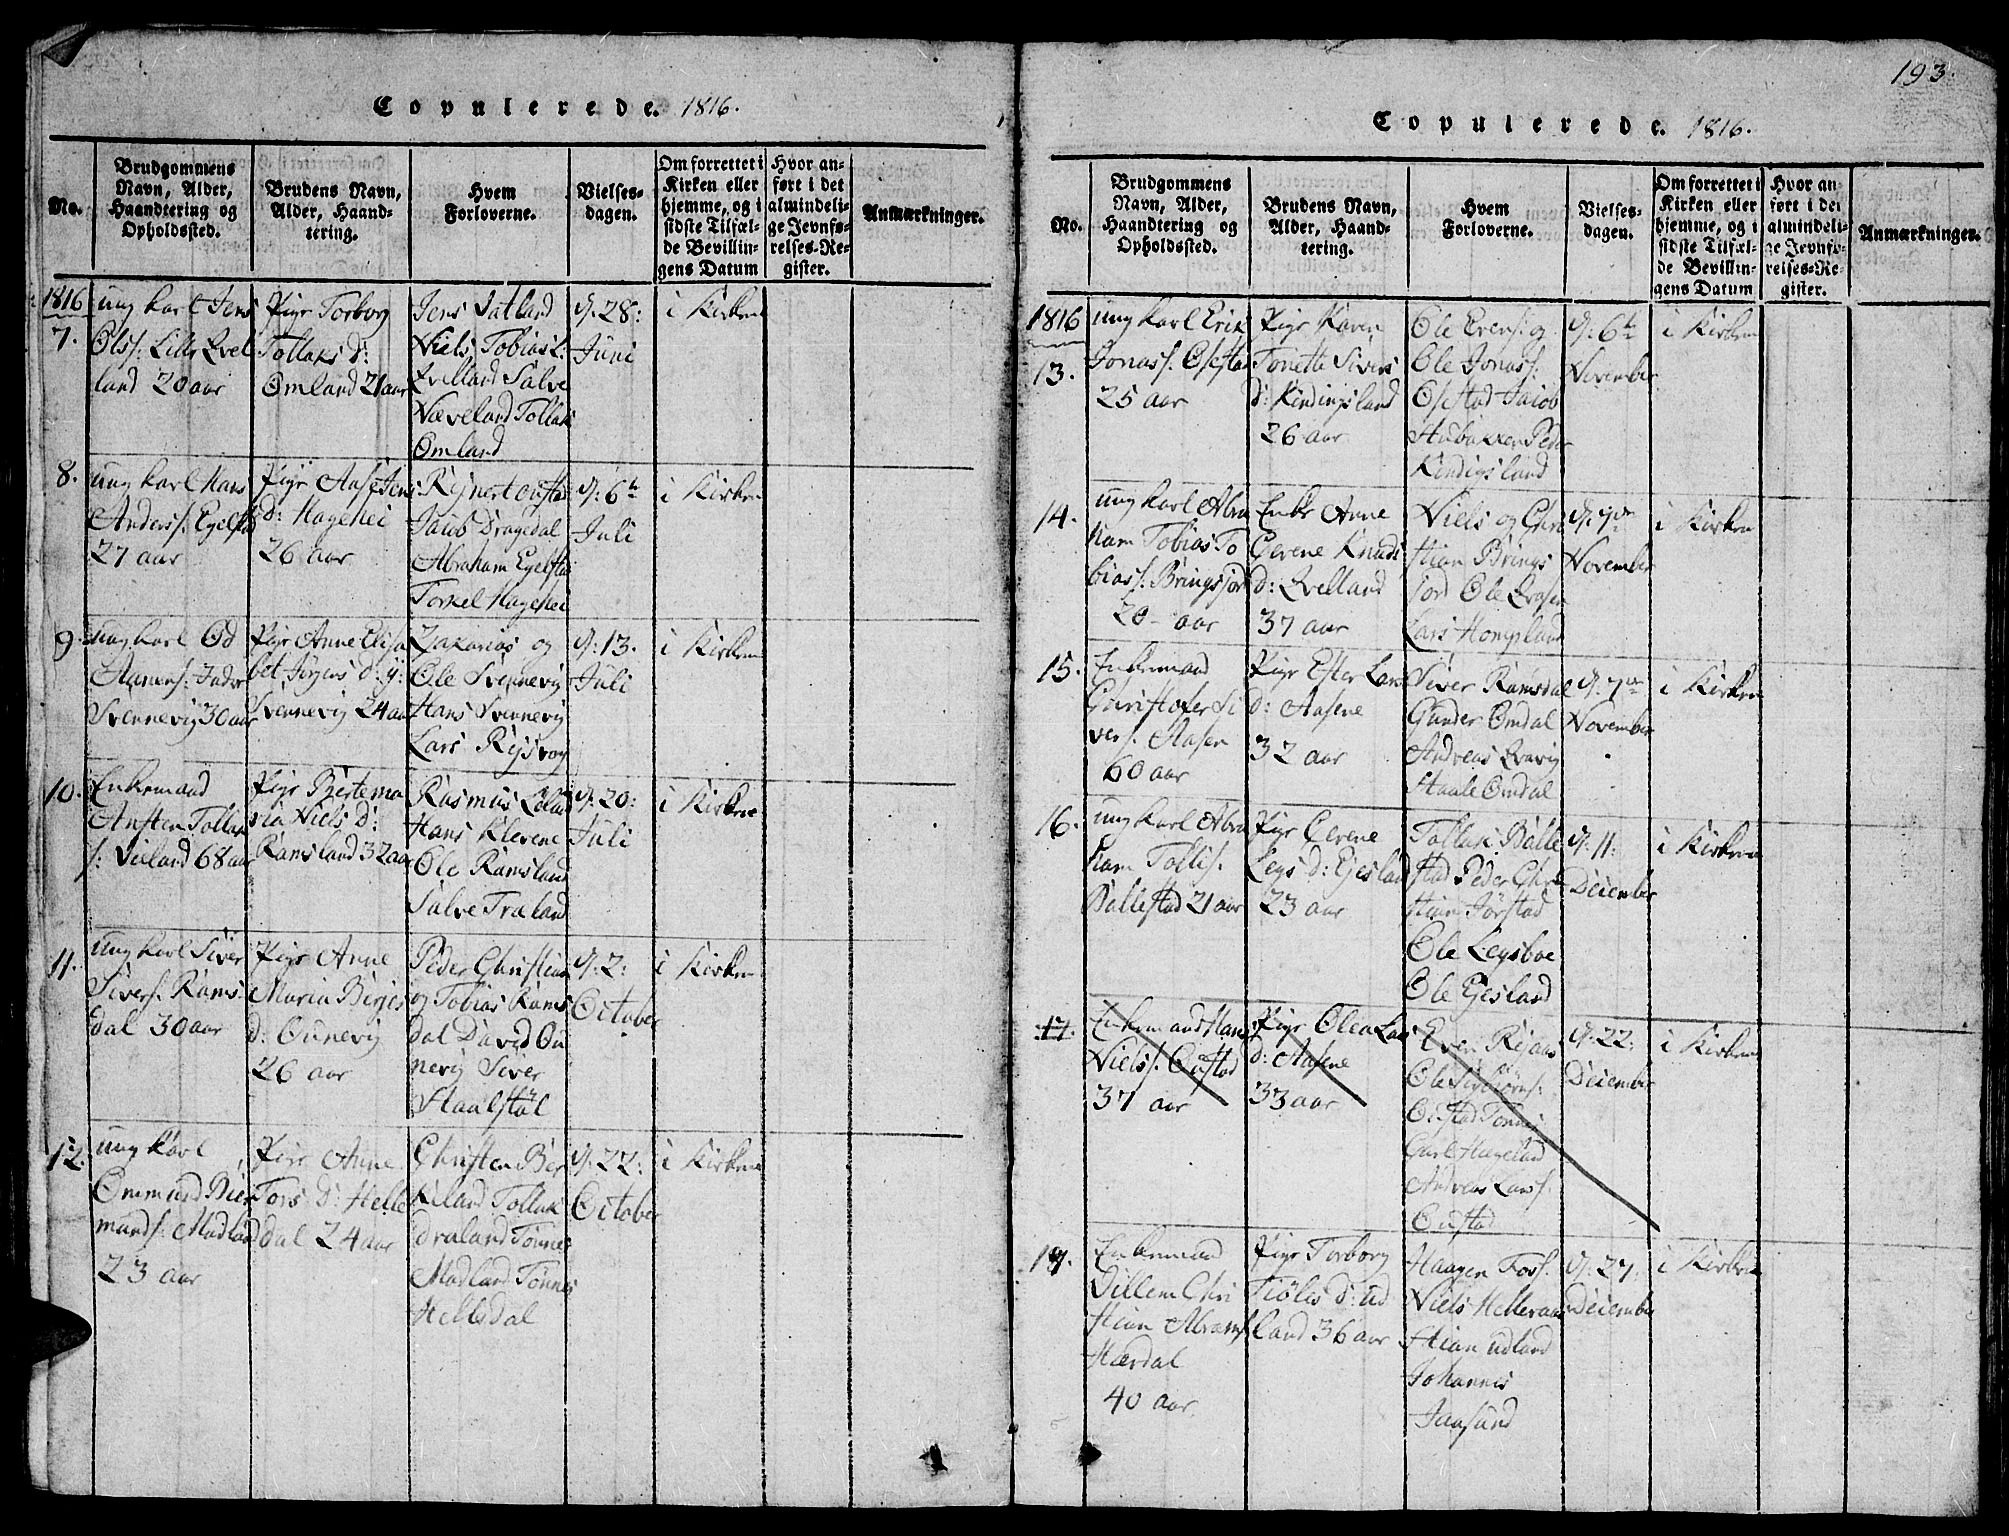 Copulerede. 1816.
No.
Brudgommens
Navn, Alder,
Haandtering og
Opholdssted.
Brudens Navn,
Alder, Haand-
tering.
Hvem
Forloverne.
Vielses-
dagen.
Om forrettet i
Kirken eller
hjemme, og i
sidste Tilfæl-
de Bevillin-
gens Datum
Hvor an-
ført i det
almindeli-
ge Jevnfø-
relses-Re-
gister.
Anmærkninger.
1816
7.
ung karl Jens
Olss: Lille Qvel
land 20 aar
Pige Torborg
Tollaks d:
Omland 21 aar
Jens Vatland
Niels Tobias
Qvelland Salve
Næveland Tollak
Omland
d: 28:
Juni
i Kirken
8.
ung karl Hans
Anderss: Egelstad
27 aar
Pige Aase Jens
d: Hagehei
26 aar
Rejnert
Jacob Dragedal
Abraham Egelstad
Torkel Hagehei
d: 6te
Juli
i Kirken
9.
ung karl Od
Aanens: Indre
Svennevig 30 aar
Pige Anne Elisa
bet Jørgens d: y:
Svennevig 24 aar
Zakarias og
Ole Svennevig
Hans Svennevig
Lars Rysvog
d: 13.
Juli
i Kirken
10.
Enkemand
Ansten Tollak
s: Veiland 68 aar
Pige Bertema
ria Niels d:
Ramsland 32 aar
Rasmus
Hans Klevene
Ole Ramsland
Salve Traland
d: 20:
Juli
i Kirken
11.
ung karl Siver
Sivers: Rams
dal 30 aar
Pige Anne
Maria Birjes
d: Ounevig
26 aar
Peder Christian
og Tobias Rams
dal David Ou
nevig Siver
Staalstøl
d: 2:
October
i Kirken
12.
ung karl
Ommund Bier
mands: Madland
23 aar
Pige Anne
Tors d: Helle
dal 24 aar
Christen Bir
keland Tollak
Draland Tønnes
Madland Tønnes
Helledal
d: 22:
October
i Kirken
193.
Copulerede. 1816.
No.
Brudgommens
Navn, Alder,
Haandtering og
Opholdssted.
Brudens Navn,
Alder, Haand-
tering.
Hvem
Forloverne.
Vielses-
dagen.
Om forrettet i
Kirken eller
hjemme, og i
sidste Tilfæl-
de Bevillin-
gens Datum
Hvor an-
ført i det
almindeli-
ge Jevnfø-
relses-Re-
gister.
Anmærkninger.
1816
13.
ung karl Erik
Jonass: Ofstad
25 aar
Pige Karen
Tonette Sivers
d: Kindingsland
26 aar
Ole Evens: og
Ole Jonass:
Ofstad Jacob
Aubakken Peder
Kindigsland
d: 6te
November
i Kirken
14.
ung karl Abra
ham Tobias To
bias s: Bringsjord
20 aar
Enke Anne
Gerene Knuds
d: Qvelland
37 aar
Niels og Chri
stian Brings
jord Ole
Lars Hompland
d: 7de
November
i Kirken
15.
Enkemand
Christofer Si
vers: Aasen
60 aar
Pige Ester Lars
d: Aasene
32 aar
Siver Ramsdal
Gunder Omdal
Andreas Qvavig
Staale Omdal
d: 7de
November
i Kirken
16.
ung karl Abra
ham Tollis:
Ballestad 21 aar
Pige Gerene
Legs d: Egesland
23 aar
Tollak Balle
stad Peder Chri
stian Jørstad
Ole Legsboe
Ole Egesland
d: 11:
December
i Kirken
17.
Enkemand Hans
Niels s: Oustad
37 aar
Pige Olea Lars
d: Aasene
33 aar
Even Rejaas
Ole Sigbiørns:
Oustad Tønnes
Carl Hageland
Andreas Lars s:
Oustad
d: 22:
December
i Kirken
17.
Enkemand
Villem Chri
stian Abrams:
Hærdal
40 aar
Pige Torborg
Tiøles d: Ud
land 36 aar
Haagen Tors:
Niels Helleraas
Stian Udland
Johannes
Jaasund
d: 27:
December
i Kirken